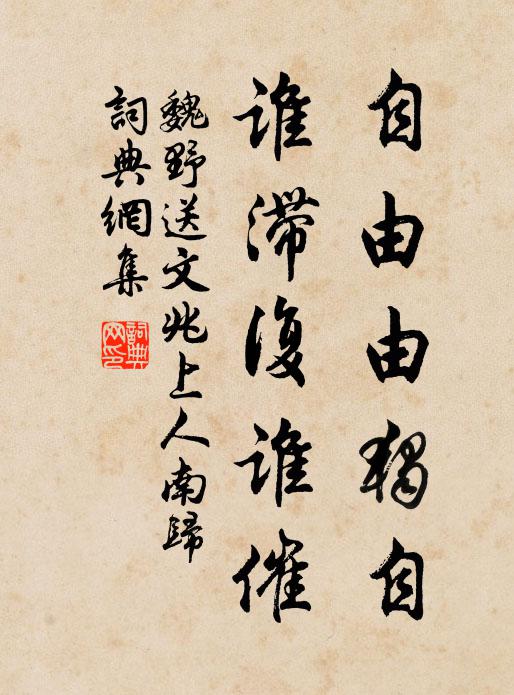 自由由獨自
誰滯復誰催
魏野送文兆上人南歸
詞典網集
詞典網印